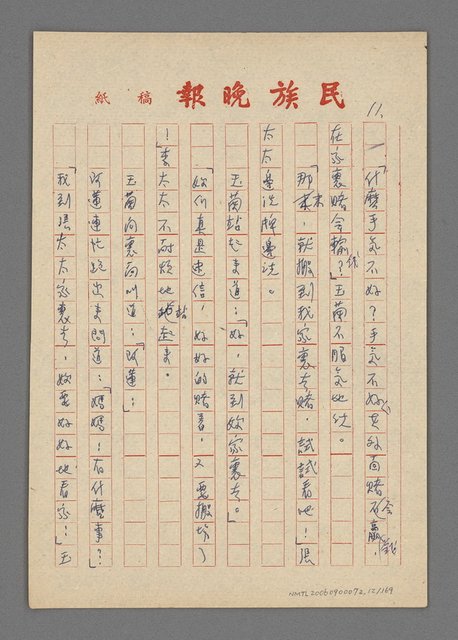 民族晚報 稿紙
11.
「什麼手氣不好?手氣不好在外面賭會贏,
在家裏賭會輸?」玉蘭不服氣地説。
「那末,就搬到我家裏去賭,試試看吧!」張
太太邊洗牌邊説。
玉蘭站起來道:「好,就到妳家裏去。」
「妳們真是迷信,好好的賭着,又要搬場
!」李太太不耐煩地站起來。
玉蘭向裏面叫道:「阿蓮!」
阿蓮連忙跑出來問道:「媽媽!有什麼事?」
「我到張太太家裏去,妳要好好地看家!」玉
NMTL20060900072, 12/169